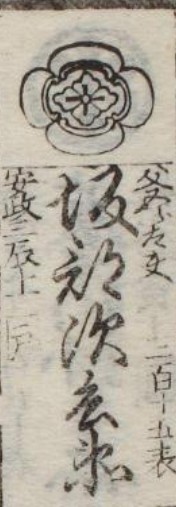 父 二百十五表
坂部次兵衛
安政三辰十二月